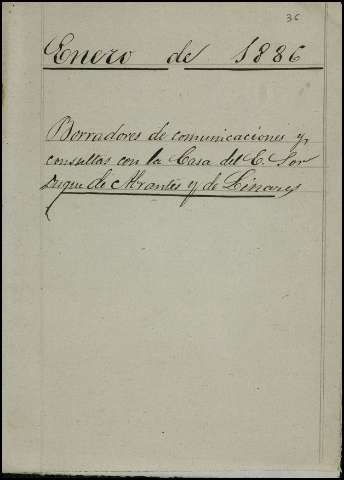 36
Enero de 1886
Borradores de comunicaciones y
consultas con la Casa del E. Sor
Duque de Abrantes y de Linares